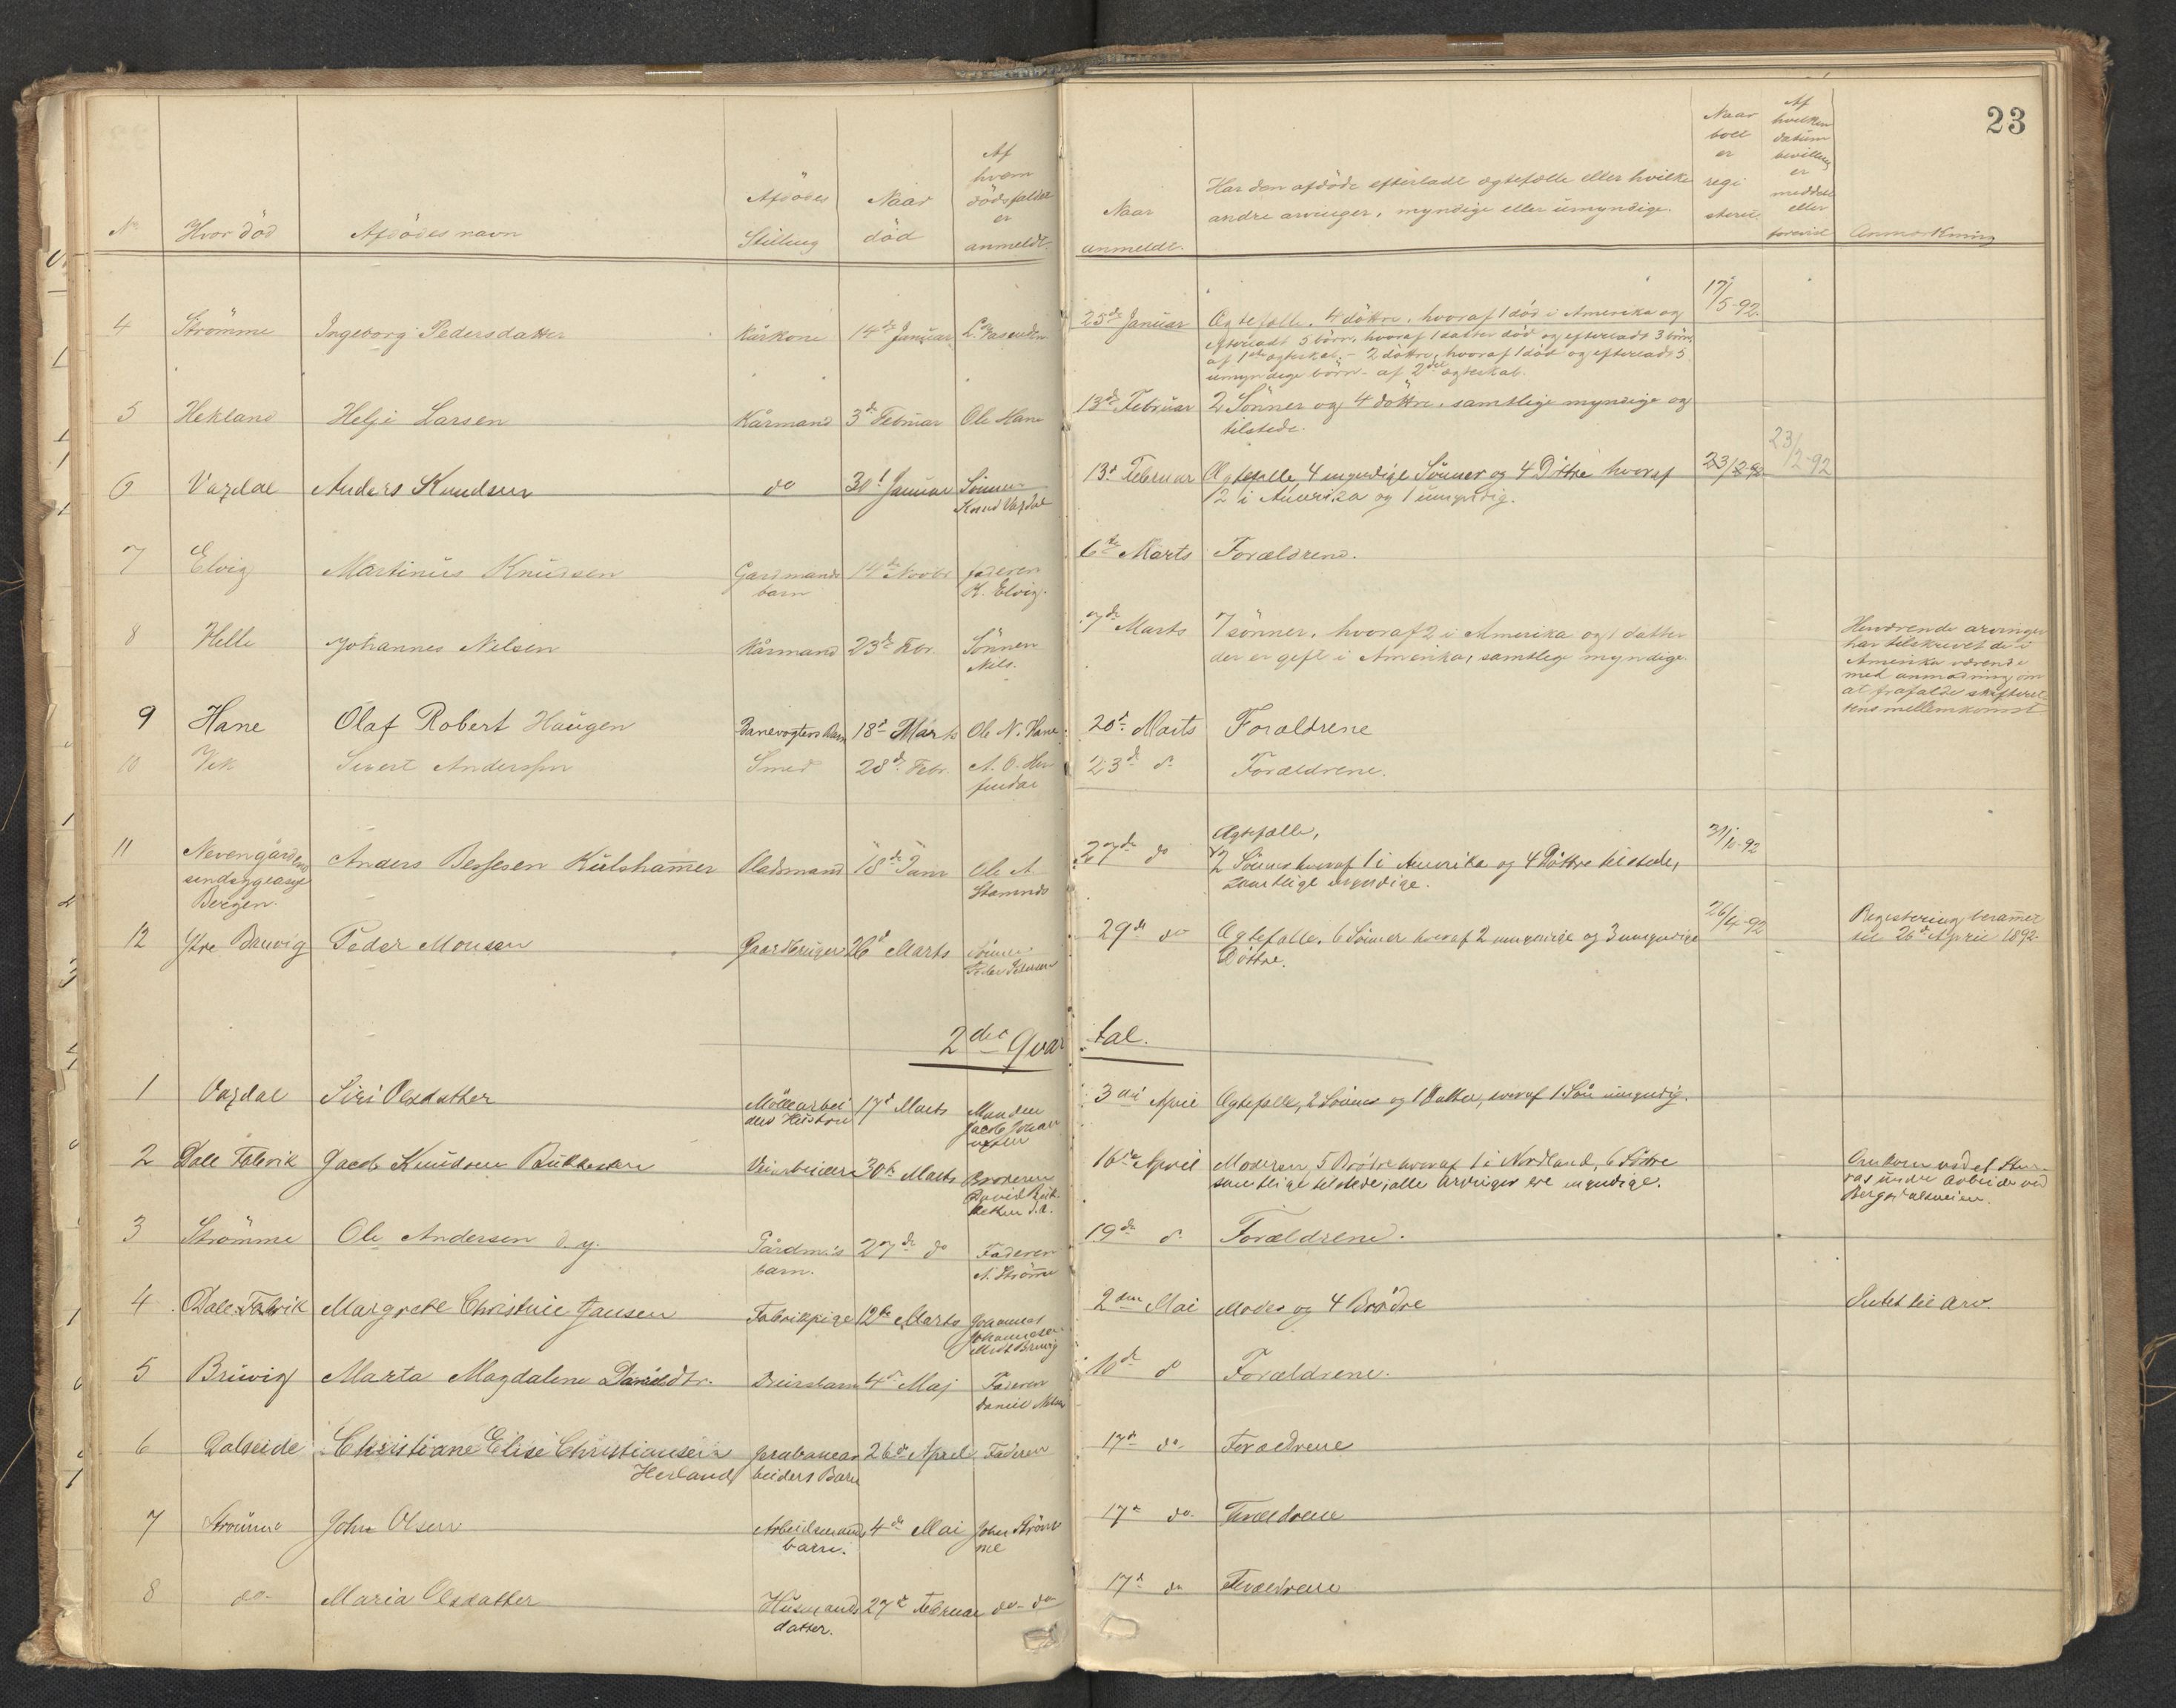 23
Nr
Hvor död
Afdödes navn
Afdödes Stilling
Naar död
Af hvem dödsfaldet er anmeldt.
Naar anmeldt.
Har den afdöde efterladt ægtefælle eller hvilke
andre arvinger, myndige eller umyndige.
Naar boet er registeret
Af hvilken datum bevilling er meddelt eller
Anmærkning
4 Strömme Ingeborg Pedersdatter Kårkone 14de Januar
25de Januar Ægtefælle, 4 döttre, hvoraf 1 död i Amerika og
efterladt 5 börn, hvoraf 1 datter död og efterladt 3 börn
af 1ste ægteskab. – 2 döttre, hvoraf 1 död og efterladt 5
umyndige börn – af 2det ægteskab.
17/5-92.
5 Hekland Helje Larsen Kårmand 3de Februar Ole Hane
13de Februar 2 Sönner og 4 döttre, samtlige myndige og
tilstede.
6 Vaxdal Anders Knudsen do 30t Januar Sönnen
Knud Vaxdal
13d Februar Ægtefælle, 4 myndige Sönner og 4 Döttre hvoraf
2 i Amerika og 1 umyndig.
23/2-92
23/2-92
7 Elvig Martinus Knudsen Gardmands 14de Novbr. faderen
barn K. Elvig.
6te Marts Forældrene.
8 Helle Johannes Nilsen Kårmand 23de Febr. Sönnen
Nils.
7de Marts 7 sönner, hvoraf 2 i Amerika og 1 datter
der er gift i Amerika, samtlige myndige
Herværende arvinger
har tilskrevet de i
Amerika værende
med anmodning om
at frafalde skifteret
tens mellemkomst
9 Hane Olaf Robert Haugen Banevogters Barn 18d Marts Ole N. Hane.
20d Marts Forældrene
10 Vik Sivert Anderssen Smed 28de Febr. A. O. Hen
findal
23d do Forældrene.
11 Nevengården
sindsygeasyl
Bergen.
Anders Bersesen Kulshammer Pladsmand 18de Janr Ole A
Stamnes
27de do Ægtefælle,
2 Sönner hvoraf 1 i Amerika og 4 Döttre tilstede,
samtlige myndige.
31/10-92
12 Ytre Bruvig Peder Monsen Gaardbruger 26d Marts Sönnen
Peder Pedersen
29de do Ægtefælle, 6 Sönner hvoraf 2 umyndige og 3 umyndige
Döttre.
26/4-92
Registering berammet
til 26d April 1892.
2det Qvartal.
1 Vaxdal Siri Olsdatter Möllearbei 17d Marts Manden
ders Hustru Jacob Johan
nessen
3die April Ægtefælle, 2 Sönner og 1 Datter, hvoraf 1 Sön umyndig.
2 Dale Fabrik Jacob Knudsen 30te Marts Broderen
16de April Moderen, 5 Brödre hvoraf 1 i Nordland, 6 Söstre
samtlige tilstede, alle Arvinger ere myndige.
Omkom ved et Sten-
ras under Arbeide ved
Bergsdalsveien.
3 Strömme Ole Andersen d. y. Gårdm.s 27de do Faderen
barn. A. Strömme
19de do Forældrene.
4 Dale Fabrik Margrete Christine Jansen Fabrikpige 12te Marts Johannes
Johannesen
Midt Bruvig
2den Mai Moder og 4 Brödre
Intet til arv.
5 Bruvig Marta Magdalene Danieldtr. 4de Maj Faderen
Daniel
10de do Forældrene.
6 Dalseide Christiane Elise Christiansen jernbanear 26de April Faderen
Herland beiders Barn
17d do. Forældrene
7 Strömme John Olsen Arbeidsmands 4de Mai John Ström
barn. me
17d do. Forældrene
8 do. Maria Olsdatter Husmands 27d Februar do. do
datter.
17d do Forældrene